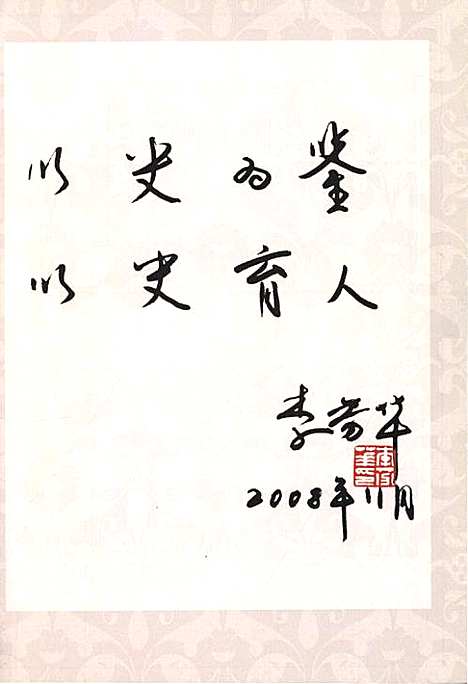 以史为鉴
以史育人
李芳华
2008年11月